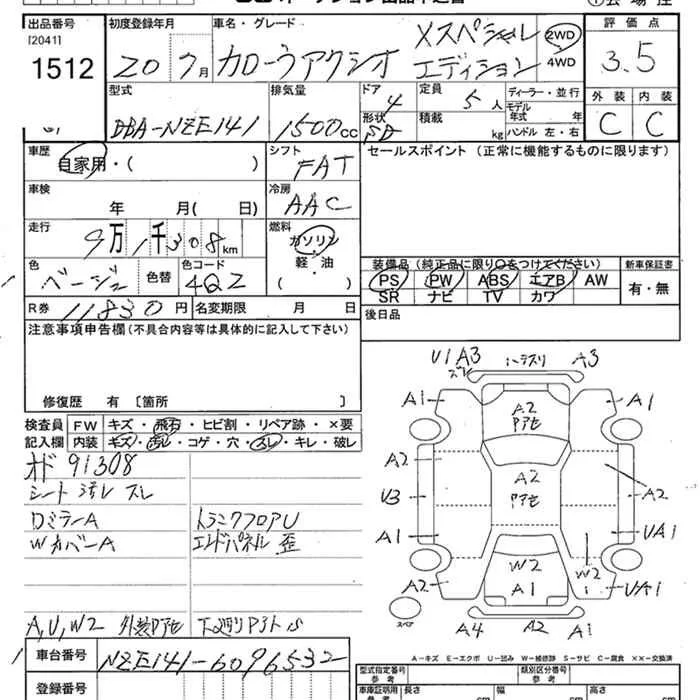 出品番号 [2041] 1512
初度登録年月 20 7月
車名・グレード カローラアクシオ Xスペシャルエディション
2WD 4WD
評価点 3.5
外装 C 内装 C
型式 DBA-NZE141
排気量 1500cc
ドア 4 形状 SD
定員 5人 積載 kg
ディーラー・並行
モデル年式 年
ハンドル 左・右
車歴 自家用・( )
シフト FAT
セールスポイント (正常に機能するものに限ります)
車検 年 月( 日)
冷房 AAC
走行 9万1千308km
燃料 ガソリン 軽・油 ( )
色 ベージュ 色替 色コード 4Q2
装備品 (純正品に限り○をつけてください) 新車保証書
PS PW ABS エアB AW 有・無
SR ナビ TV カワ
R券 11830円 名変期限 月 日
後日品
注意事項申告欄 (不具合内容等は具体的に記入して下さい)
修復歴 有 [箇所 ]
検査員記入欄
FW キズ・飛石・ヒビ割・リペア跡・×要
内装 キズ・汚レ・コゲ・穴・スレ・キレ・破レ
オド 91308
シート 汚レ スレ
ロミラーA トランクフロアU
WカバーA エンドパネル 歪
A,U,W2 外装PアセF 下廻りサビS
U1A3 スレ ハラスリ A3
A1 A2 Pアセ A1
A2 A2 Pアセ A2
U3
A1 UA1
W2 W2
A2 A1 UA1
スペア A4 A2 A1
A-キズ E-エクボ U-凹み W-補修跡 S-サビ C-腐食 ××-交換済
車台番号 NZE141-6096532
登録番号
型式指定番号 類別区分番号
参考 参考
車庫証明用 参考 長さ cm 幅 cm 高さ cm